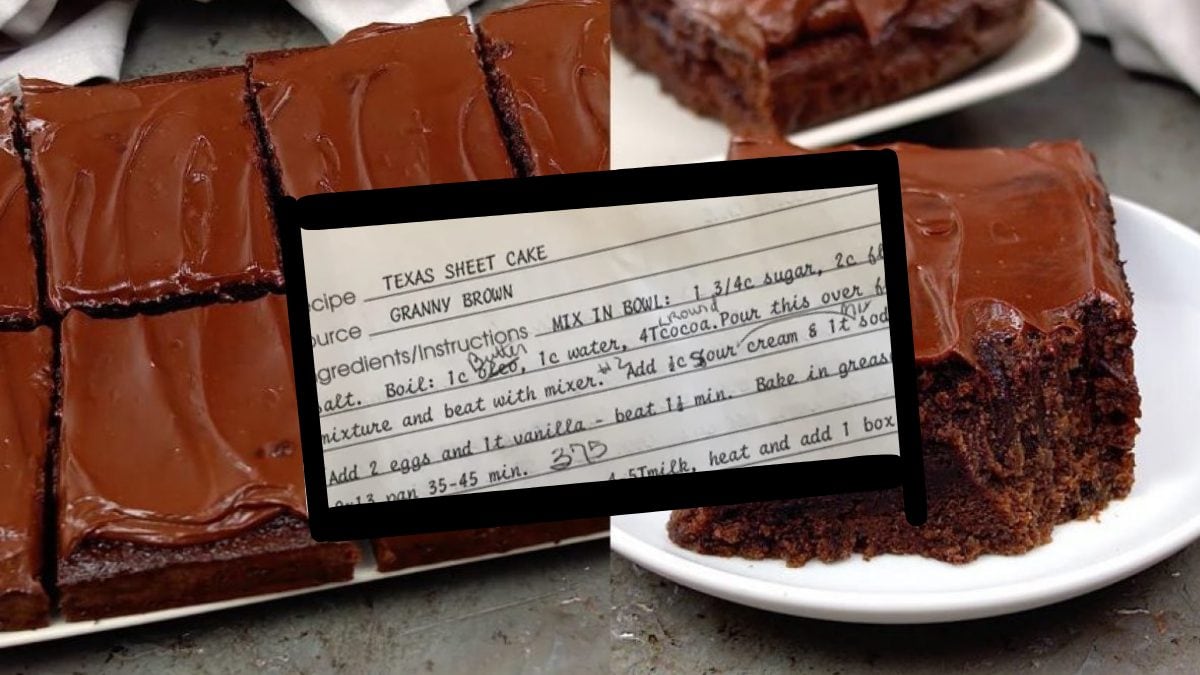 cipe TEXAS SHEET CAKE
urce GRANNY BROWN
gredients/Instructions MIX IN BOWL: 1 3/4c sugar, 2c fl
Butter LRound
alt. Boil: 1c oleo, 1c water, 4Tcocoa. Pour this over
#2 mix
mixture and beat with mixer. Add ½c Sour cream & 1t sod
Add 2 eggs and 1t vanilla - beat 1½ min. Bake in greas
9x13 pan 35-45 min. 375
4-5Tmilk, heat and add 1 box